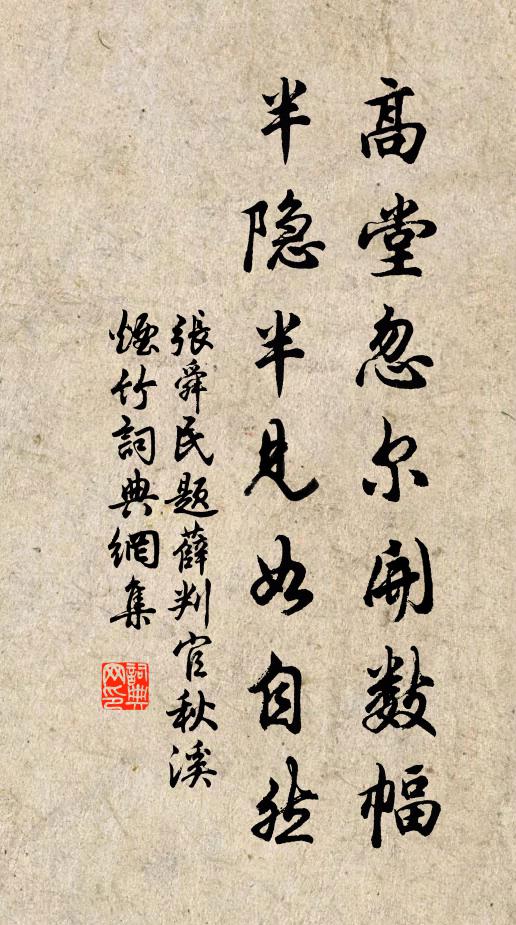 高堂忽尔開數幅
半隐半見如自然
張舜民題薛判官秋溪
煙竹詞典網集
詞典
网印